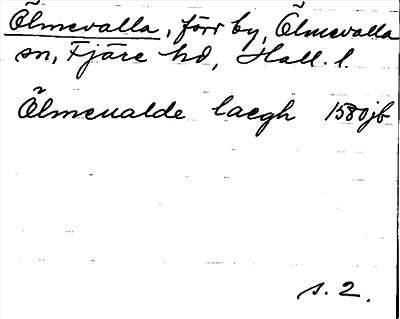 Ölmevalla, förr by, Ölmevalla
sn, Fjäre hd, Hall. l.
Ölmeualde laegh 1580jb
s. 2.